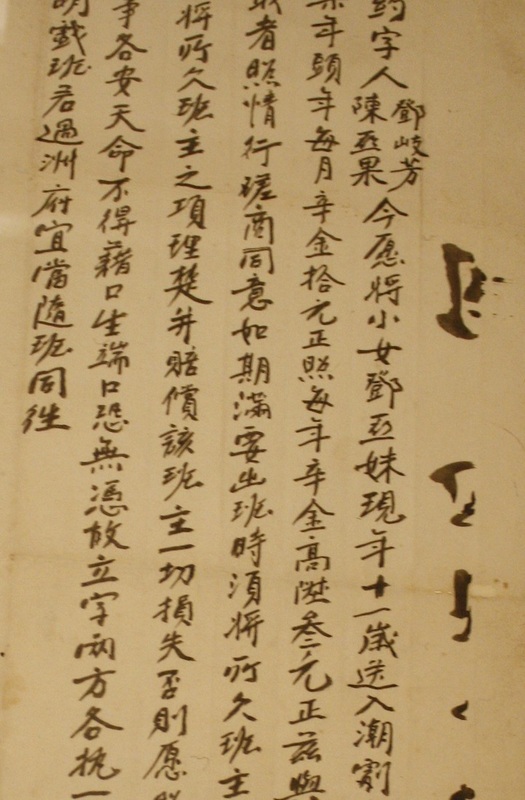 約字人鄧岐芳陳亞果今愿將小女鄧亞妹現年十一歲送入潮劇
年頭年每月辛金拾元正照每年辛金高陞叁元正茲與
者照情行磋商同意如期滿要出班時須將所欠班主
將所欠班主之項理楚并賠償該班主一切損失否則愿
事各安天命不得藉口生端口恐無憑故立字兩方各执一
明戲班若過洲府宜當隨班同往